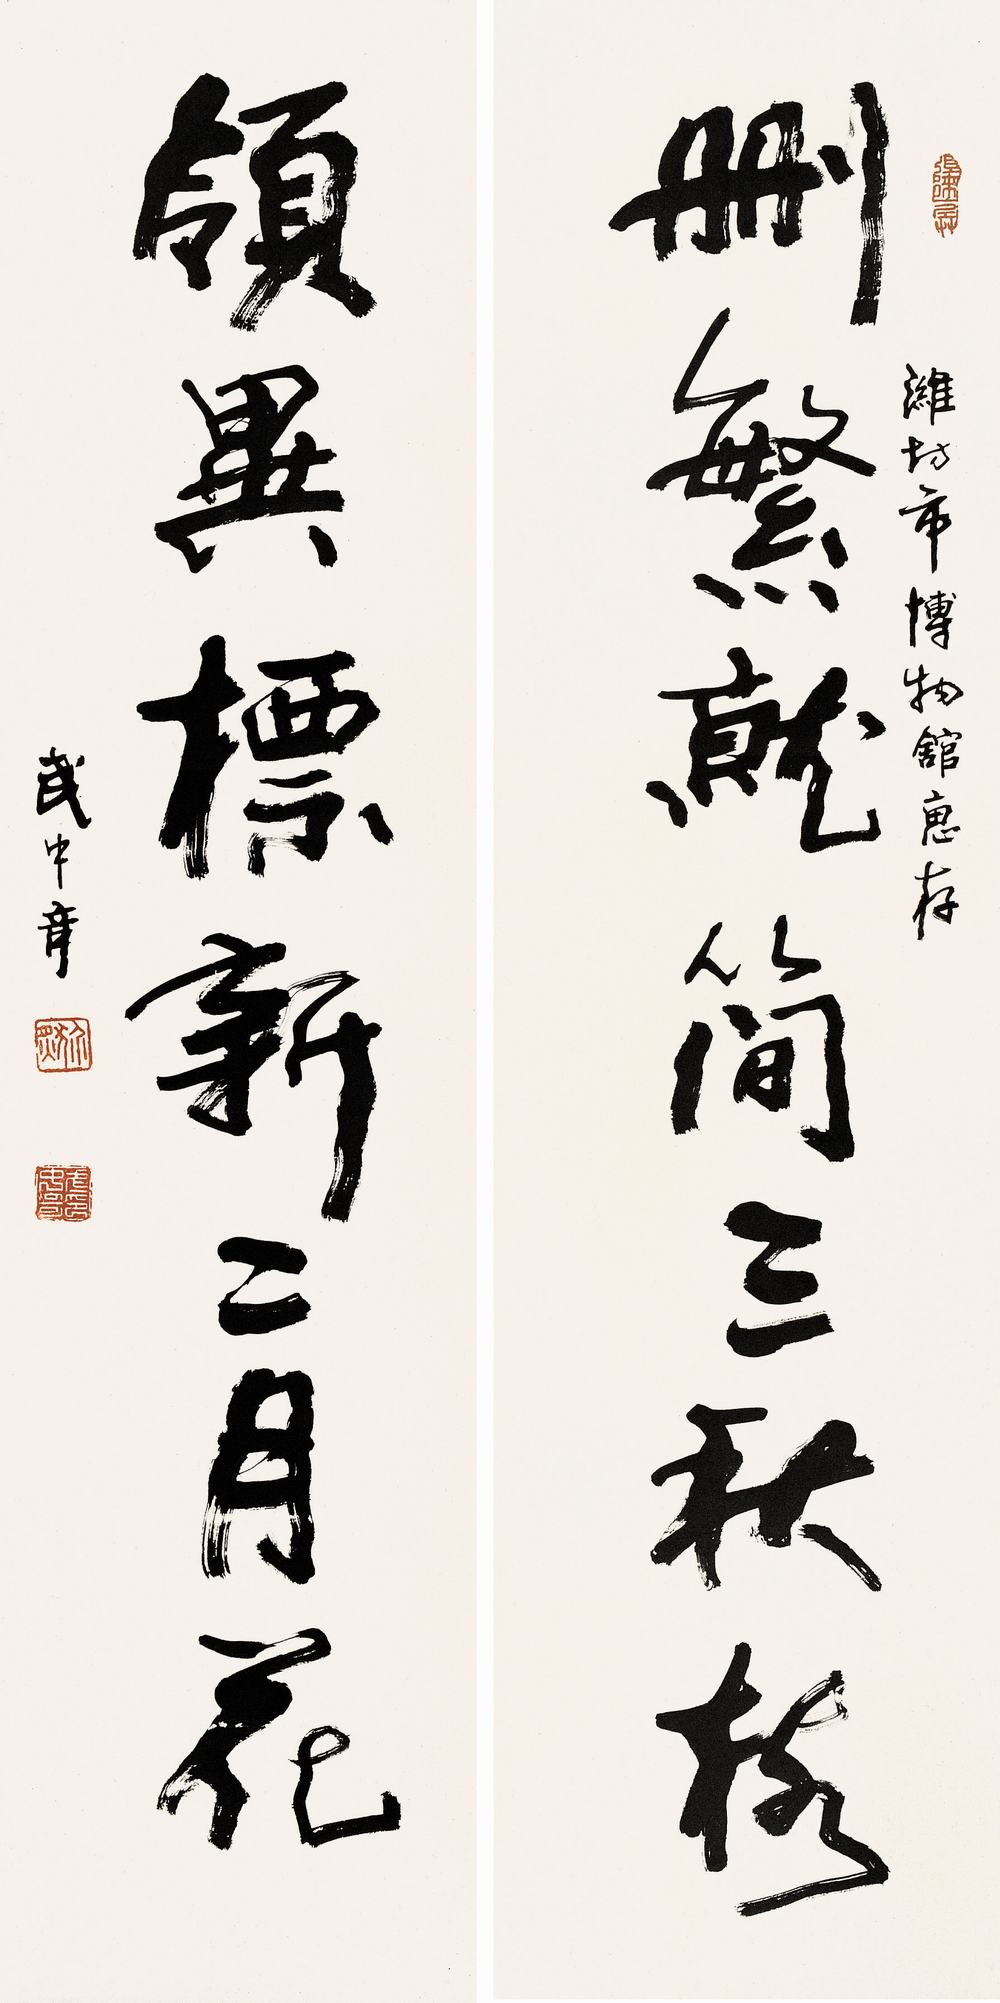 濰坊市博物館惠存
刪繁就簡三秋樹
領異標新二月花
武中奇